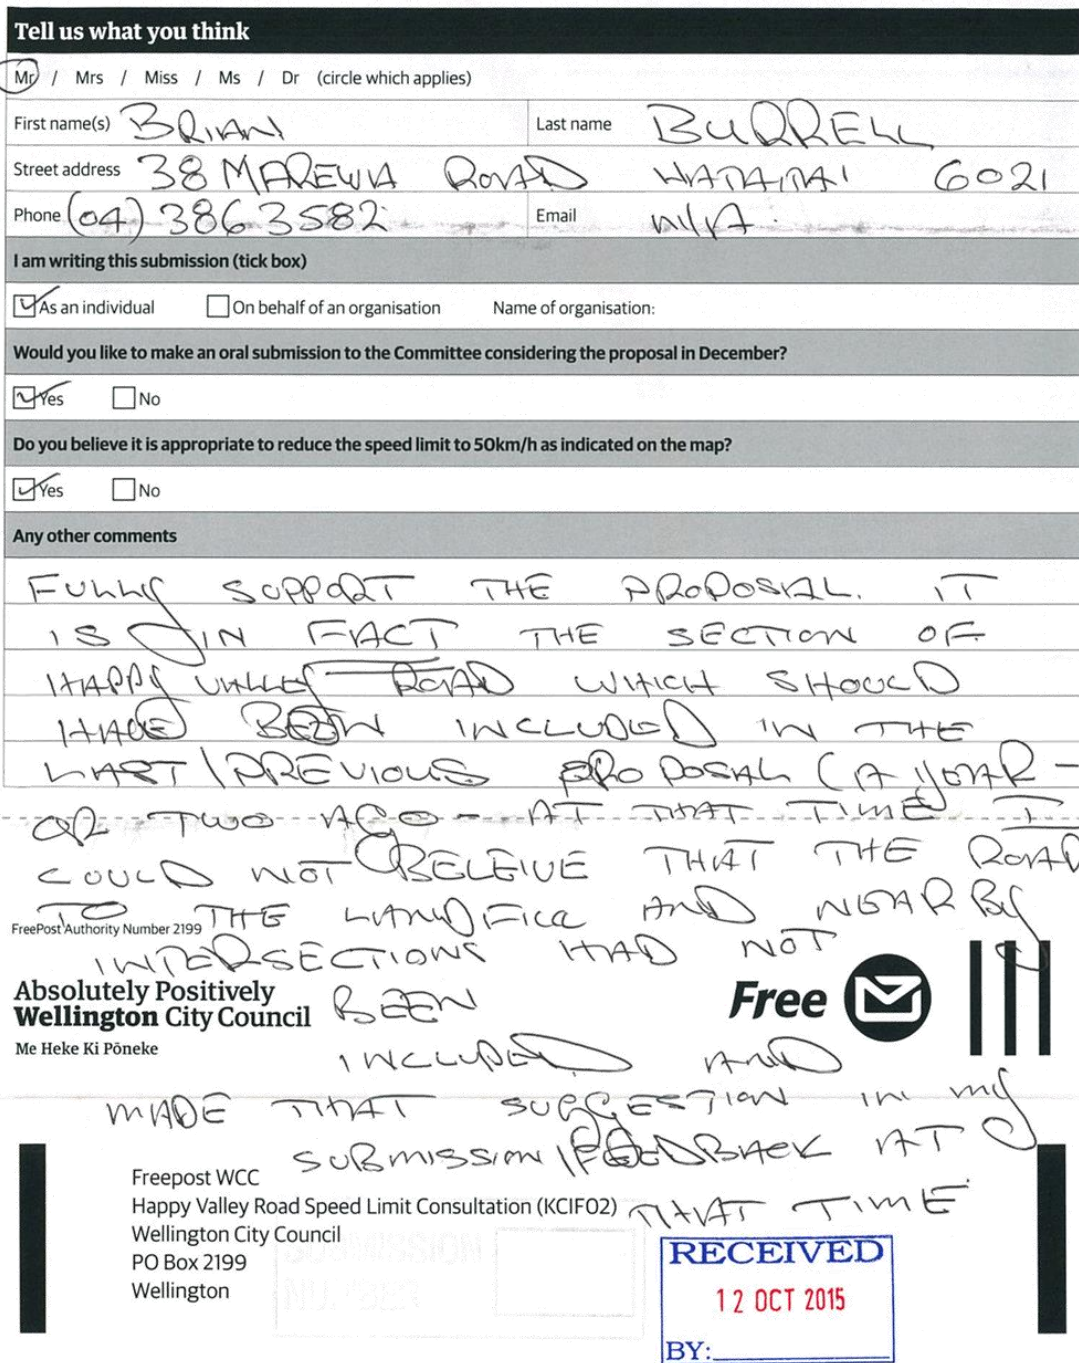 Tell us what you think
Mr / Mrs / Miss / Ms / Dr (circle which applies)
First name(s) BRIAN Last name BURRELL
Street address 38 MAREWA ROAD HATAITAI 6021
Phone (04) 386 3582 Email N/A.
I am writing this submission (tick box)
As an individual On behalf of an organisation Name of organisation:
Would you like to make an oral submission to the Committee considering the proposal in December?
Yes No
Do you believe it is appropriate to reduce the speed limit to 50km/h as indicated on the map?
Yes No
Any other comments
FULLY SUPPORT THE PROPOSAL. IT
IS IN FACT THE SECTION OF
HAPPY VALLEY ROAD WHICH SHOULD
HAVE BEEN INCLUDED IN THE
LAST/PREVIOUS PROPOSAL (A YEAR -
OR TWO AGO - AT THAT TIME I
COULD NOT BELEIVE THAT THE ROAD
TO THE LANDFILL AND NEARBY
FreePost Authority Number 2199
INTERSECTIONS HAD NOT
Absolutely Positively
Wellington City Council
Me Heke Ki Pōneke
BEEN
Free
INCLUDED AND
MADE THAT SUGGESTION IN MY
SUBMISSION/FEEDBACK AT
Freepost WCC
Happy Valley Road Speed Limit Consultation (KCIF02) THAT TIME.
Wellington City Council
PO Box 2199
Wellington
RECEIVED
12 OCT 2015
BY: